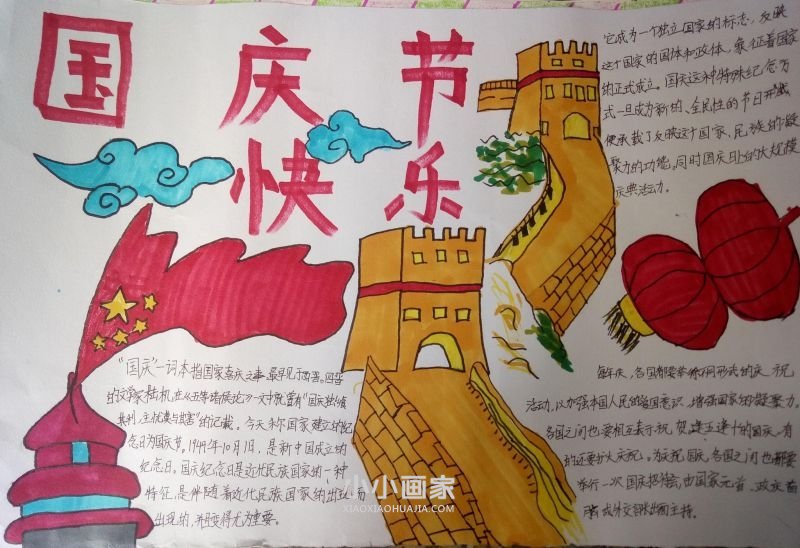 国庆节
快乐
它成为一个独立国家的标志，反映
这个国家的国体和政体，象征着国家
的正式成立。国庆这种特殊纪念方
式一旦成为新的、全民性的节日形式
便承载了反映这个国家、民族的凝
聚力的功能。同时国庆日上的大规模
庆典活动。
"国庆"一词本指国家喜庆之事，最早见于西晋。西晋
的文学家陆机在《五等诸侯论》一文中就曾有"国庆独飨
其利，主忧莫与其害"的记载、今天称国家建立的纪
念日为国庆节，1949年10月1日，是新中国成立的
纪念日。国庆纪念日是近代民族国家的一种
特征，是伴随着近代民族国家的出现而
出现的，并且变得尤为重要。
每年国庆，各国都要举行不同形式的庆祝
活动，以加强本国人民的爱国意识，增强国家的凝聚力。
各国之间也要相互表示祝贺逢五逢十的国庆，有
的还要扩大庆祝。为庆祝国庆，各国之间也都要
举行一次国庆招待会，由国家元首、政府首
脑或外交部长出面主持。
小小画家
XIAOXIAOHUAJIA.COM